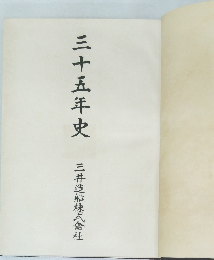 三十五年史
三井造船株式会社